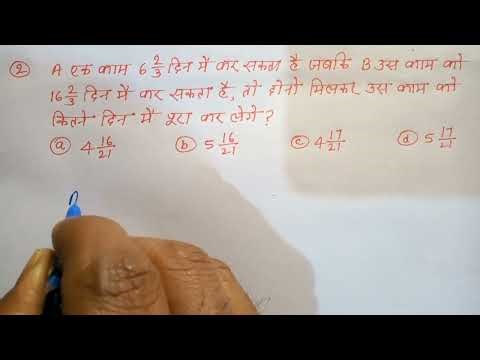 ② A एक काम 6 2/3 दिन में कर सकता है जबकि B उस काम को
16 2/3 दिन में कर सकता है, तो दोनों मिलकर उस काम को
कितने दिन में पूरा कर लेगे?
ⓐ 4 16/21 ⓑ 5 16/21 ⓒ 4 17/21 ⓓ 5 17/21